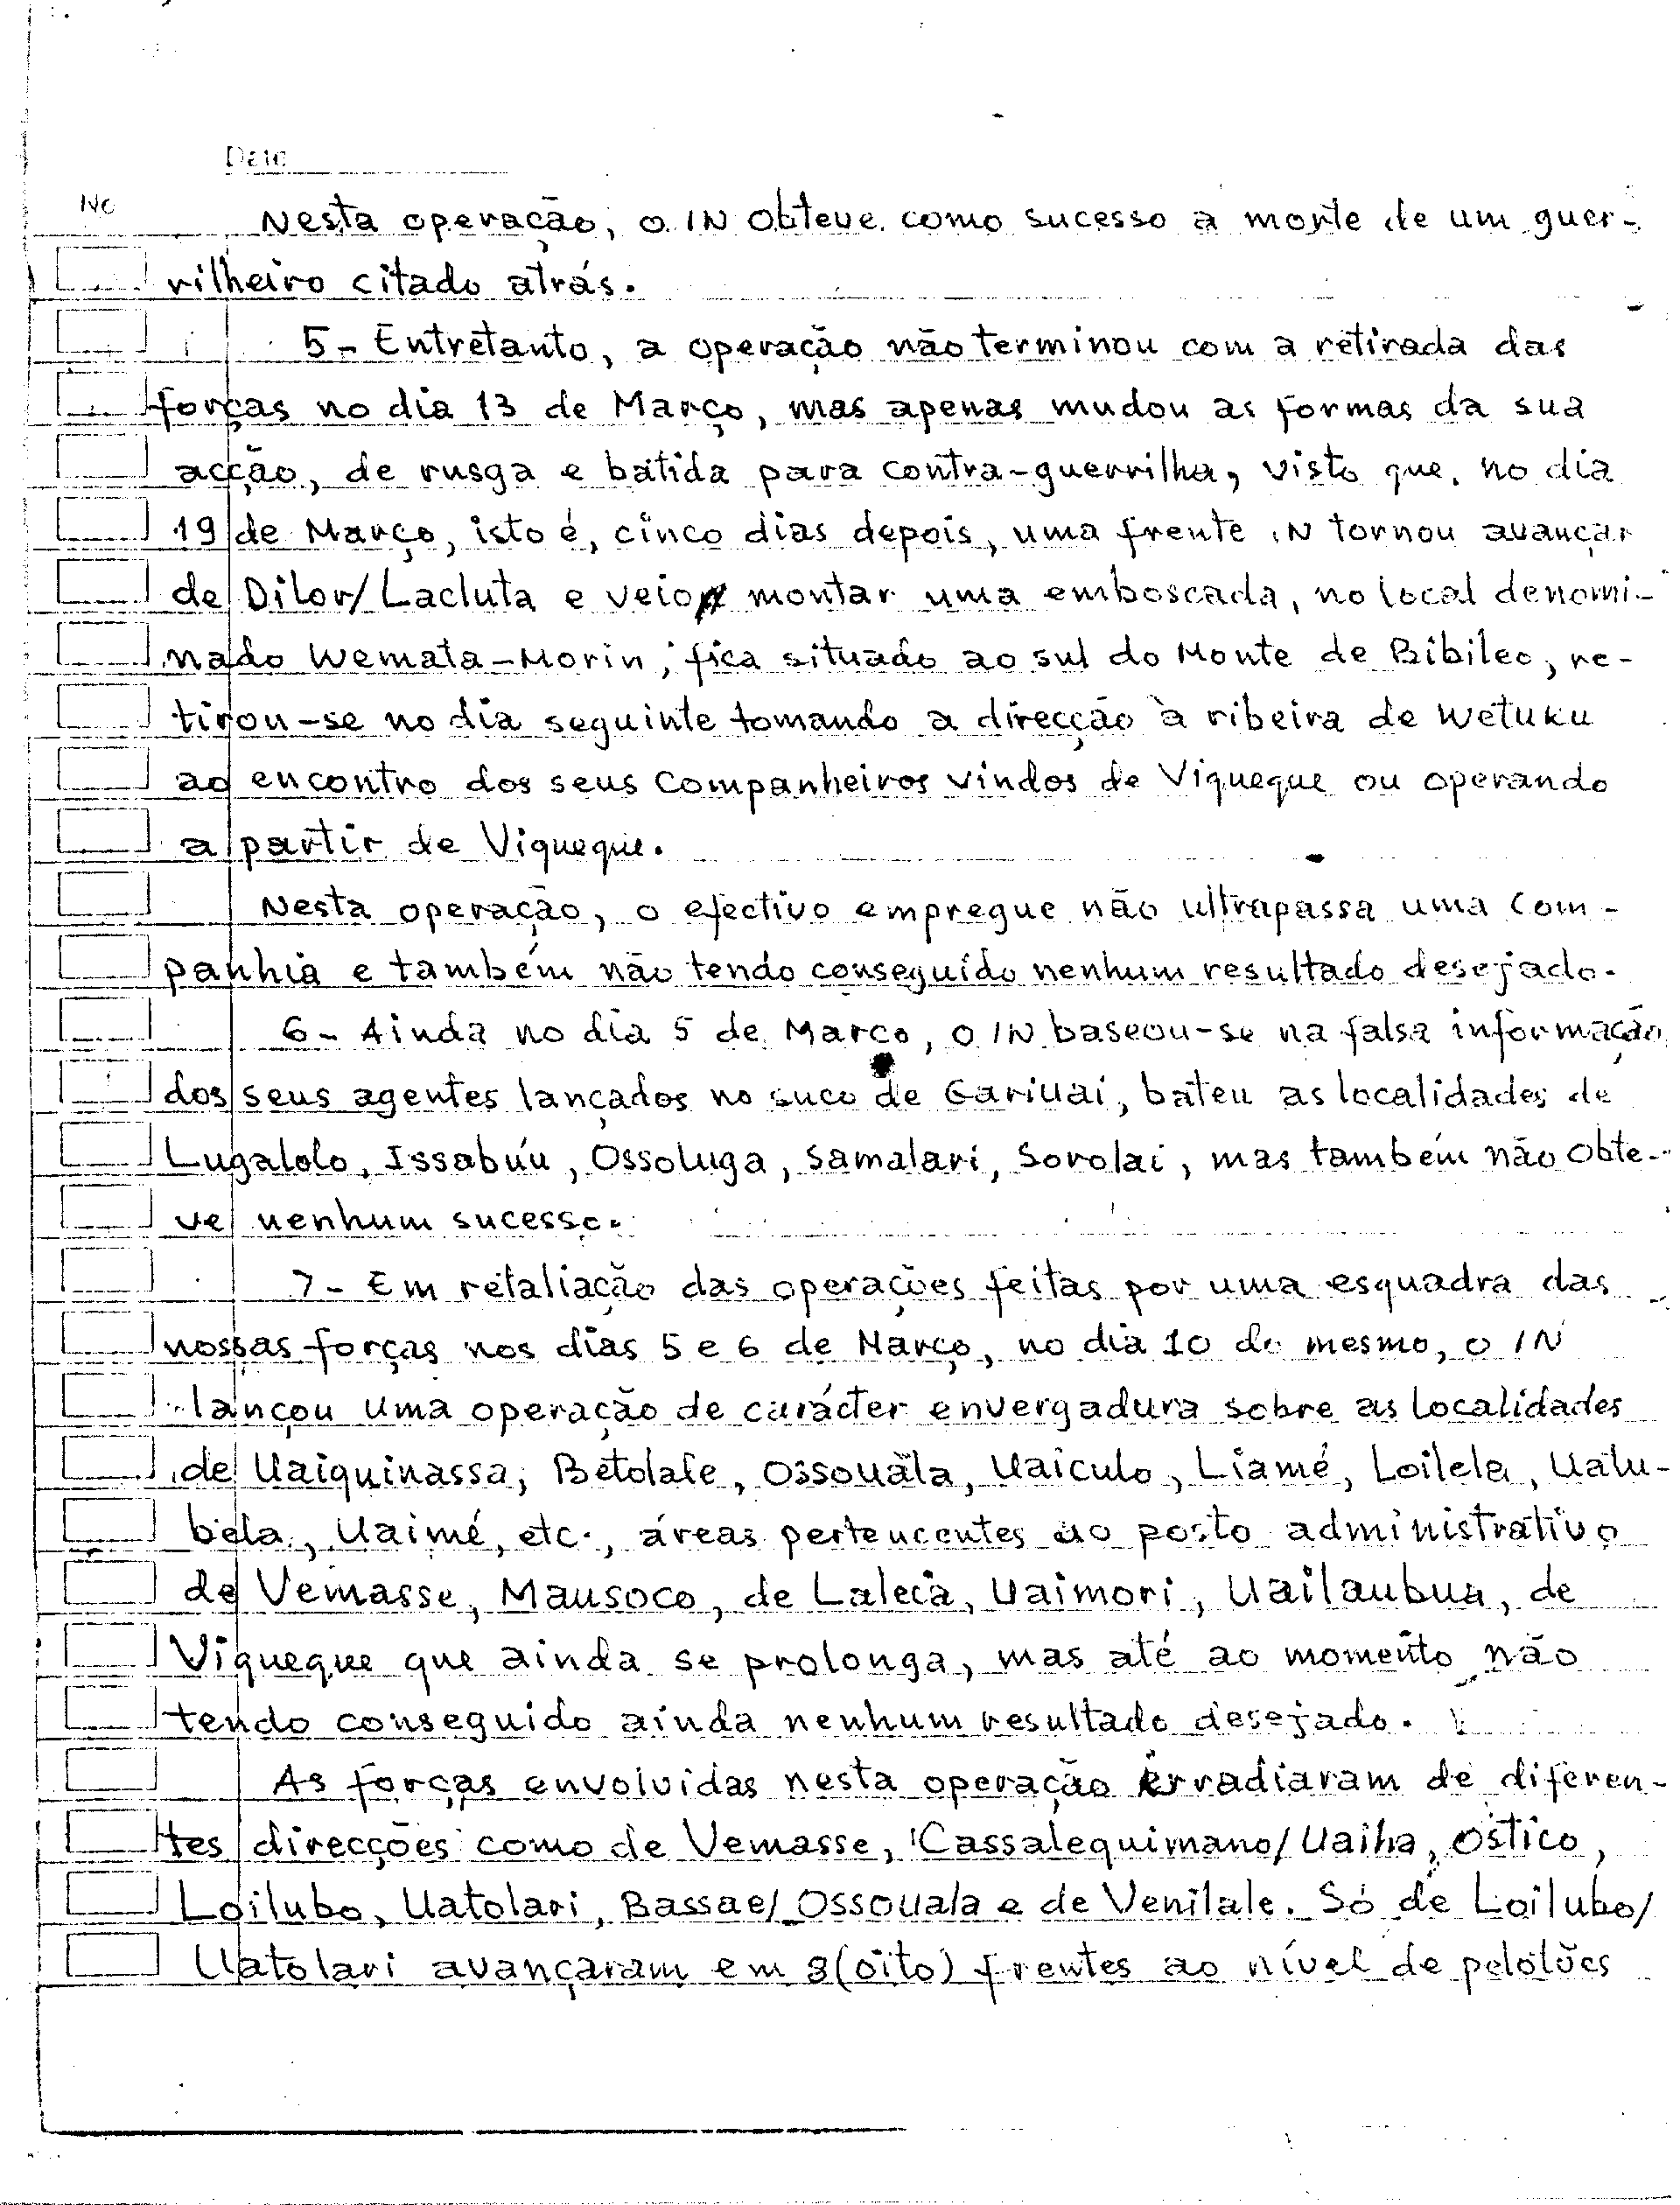 Date
No
Nesta operação, o IN obteve como sucesso a morte de um guer-
rilheiro citado atrás.
5- Entretanto, a operação não terminou com a retirada das
forças no dia 13 de Março, mas apenas mudou as formas da sua
acção, de rusga e batida para contra-guerrilha, visto que, no dia
19 de Março, isto é, cinco dias depois, uma frente IN tornou avançar
de Dilor/Lacluta e veio montar uma emboscada, no local denomi-
nado Wemata-Morin, fica situado ao sul do Monte de Bibileo, re-
tirou-se no dia seguinte tomando a direcção à ribeira de Wetuku
ao encontro dos seus companheiros vindos de Viqueque ou operando
a partir de Viqueque.
Nesta operação, o efectivo empregue não ultrapassa uma com-
panhia e também não tendo conseguido nenhum resultado desejado.
6- Ainda no dia 5 de Março, o IN baseou-se na falsa informação
dos seus agentes lançados no suco de Gariuai, bateu as localidades de
Lugalolo, Issabúu, Ossoluga, Samalari, Sorolai, mas também não obte-
ve nenhum sucesso.
7- Em retaliação das operações feitas por uma esquadra das
nossas forças nos dias 5 e 6 de Março, no dia 10 do mesmo, o IN
lançou uma operação de carácter envergadura sobre as localidades
de Uaiquinassa, Betolale, Ossouála, Uaiculo, Liamé, Loilela, Ualu-
bela, Uaimé, etc., áreas pertencentes ao posto administrativo
de Vemasse, Mausoco, de Laleia, Uaimori, Uailaubua, de
Viqueque que ainda se prolonga, mas até ao momento não
tendo conseguido ainda nenhum resultado desejado.
As forças envolvidas nesta operação irradiaram de diferen-
tes direcções como de Vemasse, Cassalequimano/Uaiha, Ostico,
Loilubo, Uatolari, Bassae/Ossouala e de Venilale. Só de Loilubo/
Uatolari avançaram em 8(oito) frentes ao nível de pelotões